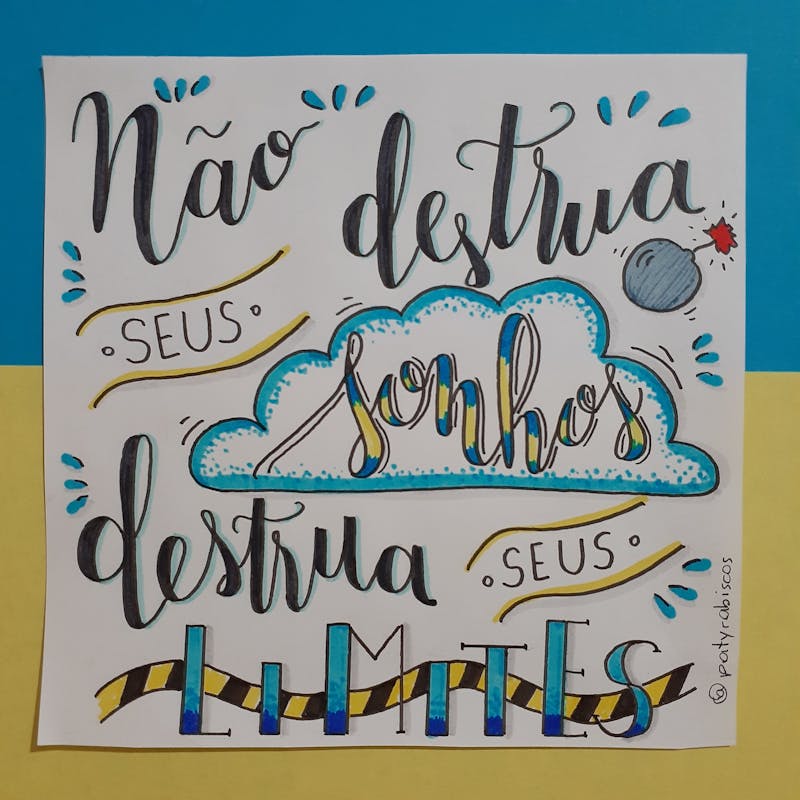 Não destrua
• SEUS •
sonhos
destrua • SEUS •
LIMITES
@patyrabiscos